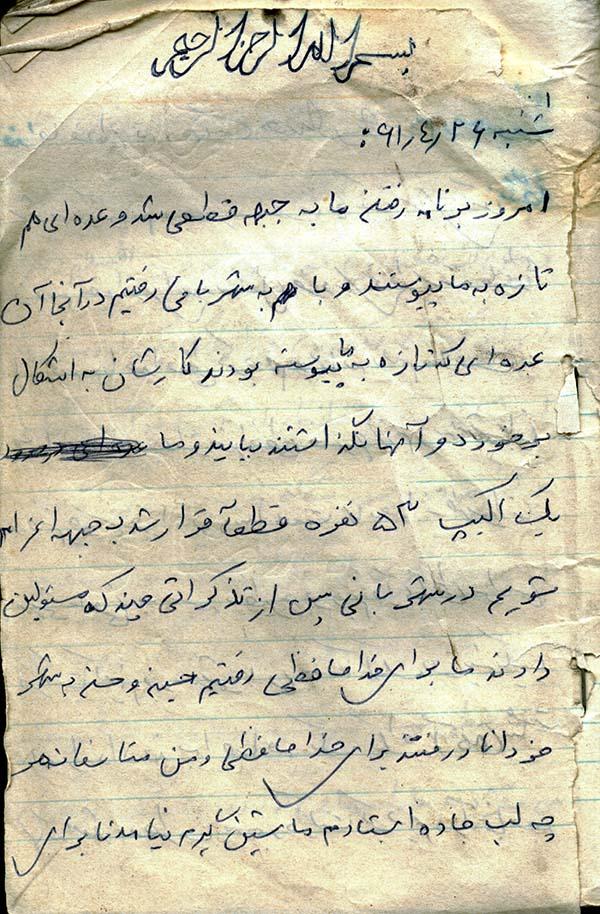 بسم الله الرحمن الرحیم
شنبه ۶۱٫۴٫۲۶ :
امروز برنامه رفتن ما به جبهه قطعی شد و عده ای هم
تازه به ما پیوستند و با هم به شهربانی رفتیم در آنجا آن
عده ای که تازه به ما پیوسته بودند کارشان به اشکال
برخورد و آنها نگذاشتند بیایند و ما
یک اکیپ ۵۳ نفره قطعاً قرار شد به جبهه اعزام
شویم در شهربانی پس از تذکراتی چند که مسئولین
دادند ما برای خداحافظی رفتیم حسین و حسن به شهر
خودشان رفتند برای خداحافظی و من متاسفانه هر
چه لب جاده ایستادم ماشین گیرم نیامد تا برای